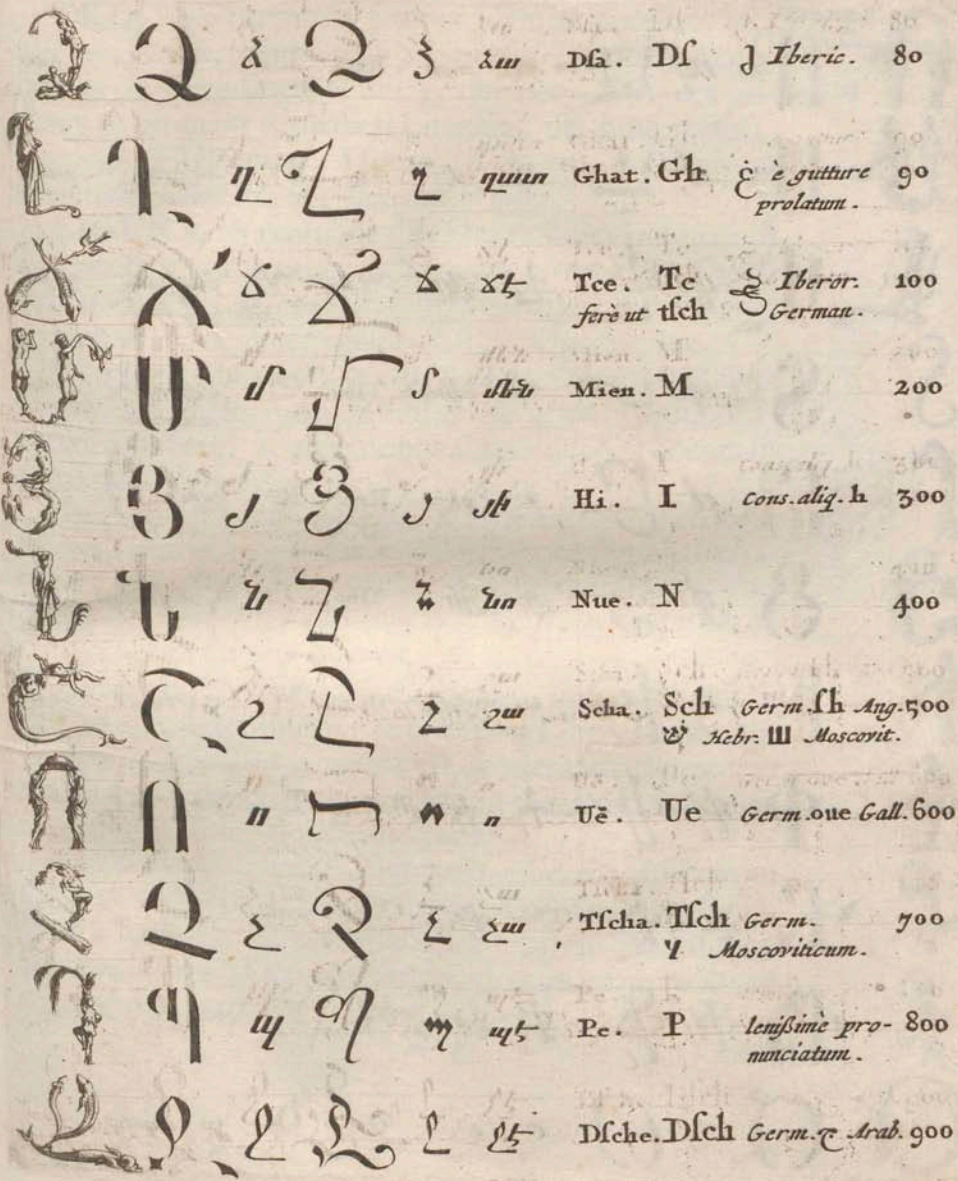 Ձ Ձ ձ Ձ ձ ձա Dſa. Dſ J Iberic. 80
Ղ Ղ ղ Ղ ղ ղատ Ghat. Gh غ è gutture 90
prolatum.
Ճ Ճ ճ Ճ ճ ճէ Tce. Tc Iberor. 100
ferè ut tſch German.
Մ Մ մ Մ մ մեն Mien. M 200
Յ Յ յ Յ յ յի Hi. I Cons. aliq. h 300
Ն Ն ն Ն ն նո Nue. N 400
Շ Շ շ Շ շ շա Scha. Sch Germ. ſh Ang. 500
שׁ Hebr. Ш Moscovit.
Ո Ո ո Ո ո ո Uë. Ue Germ. oue Gall. 600
Չ Չ չ Չ չ չա Tſcha. Tſch Germ. 700
Ч Moscoviticum.
Պ Պ պ Պ պ պէ Pe. P lenißimè pro- 800
nunciatum.
Ջ Ջ ջ Ջ ջ ջէ Dſche. Dſch Germ. ج Arab. 900